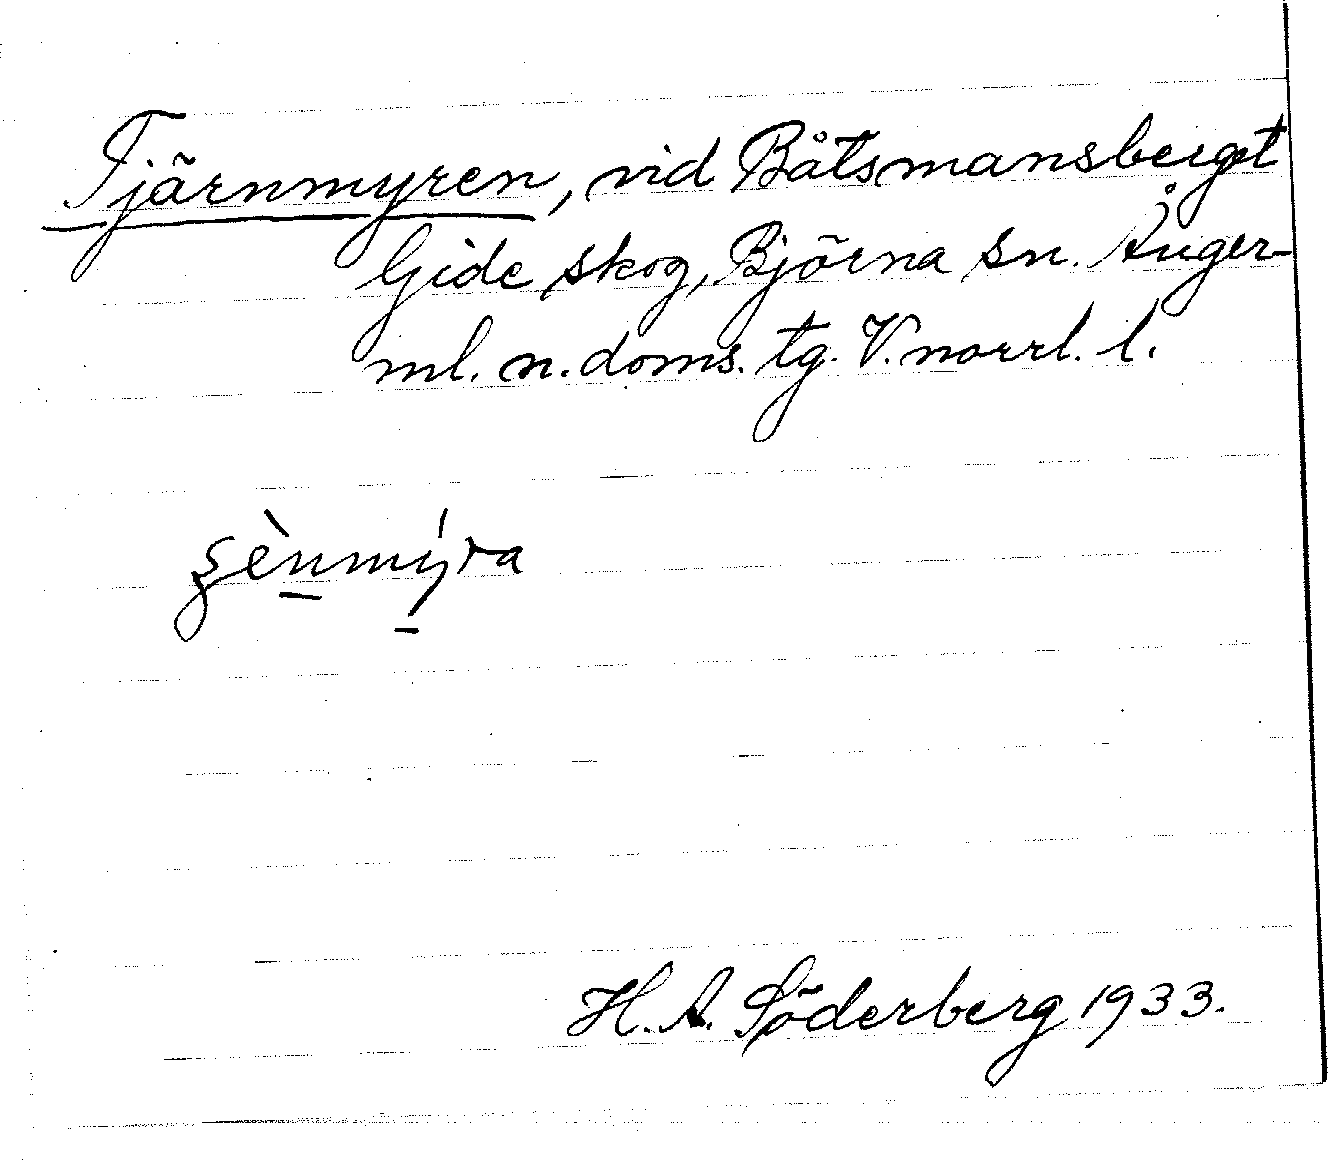 Tjärnmyren, vid Båtsmansberget
Gide skog, Björna sn. Ånger-
ml. n. doms. tg. V. norrl. l.
H. A. Söderberg 1933.